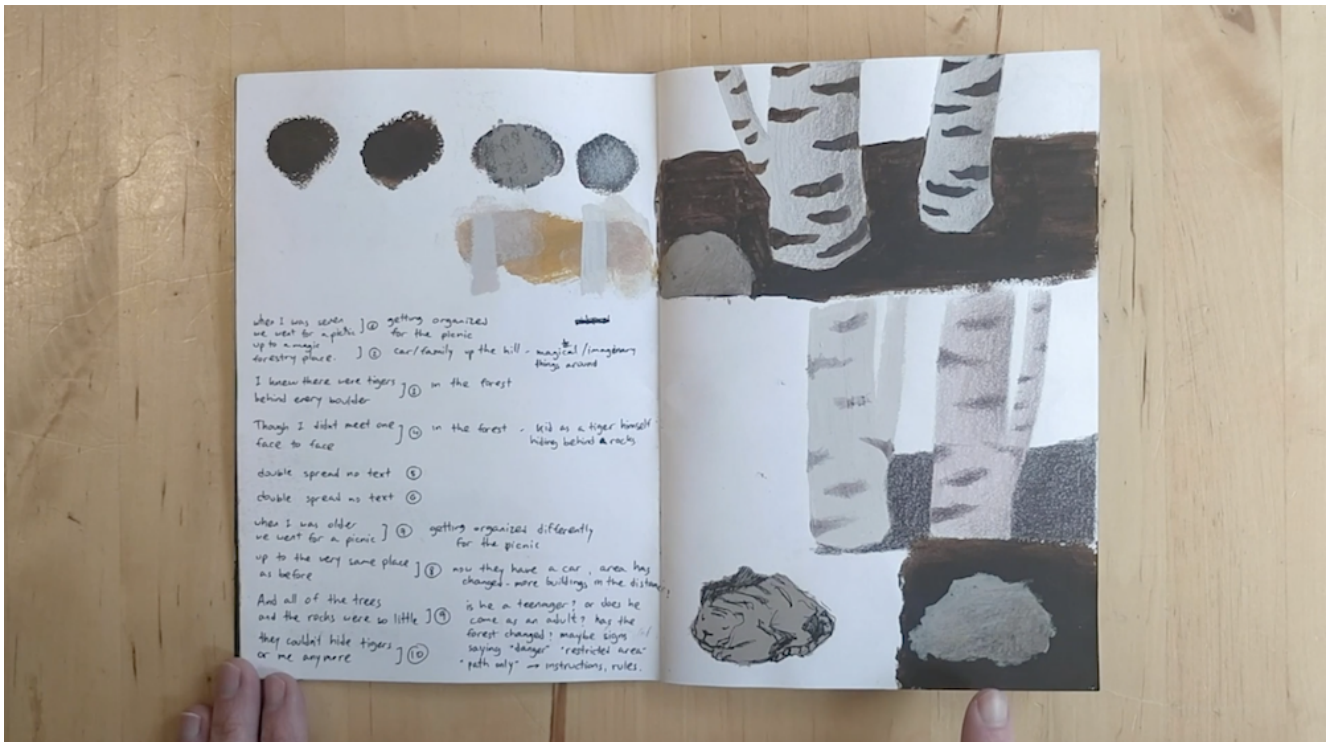 when I was seven
we went for a picnic ] ① getting organized
for the picnic
up to a magic
forestry place. ] ② car/family up the hill - magical/imaginary
things around
I knew there were tigers
behind every boulder ] ③ in the forest
Though I didn't meet one
face to face ] ④ in the forest - kid as a tiger himself
hiding behind rocks
double spread no text ⑤
double spread no text ⑥
when I was older
we went for a picnic ] ⑦ getting organized differently
for the picnic
up to the very same place
as before ] ⑧ now they have a car, area has
changed - more buildings in the distance?
And all of the trees
and the rocks were so little ] ⑨ is he a teenager? or does he
come as an adult? has the
forest changed? maybe signs
they couldn't hide tigers
or me anymore ] ⑩ saying "danger" "restricted area"
"path only" → instructions, rules.